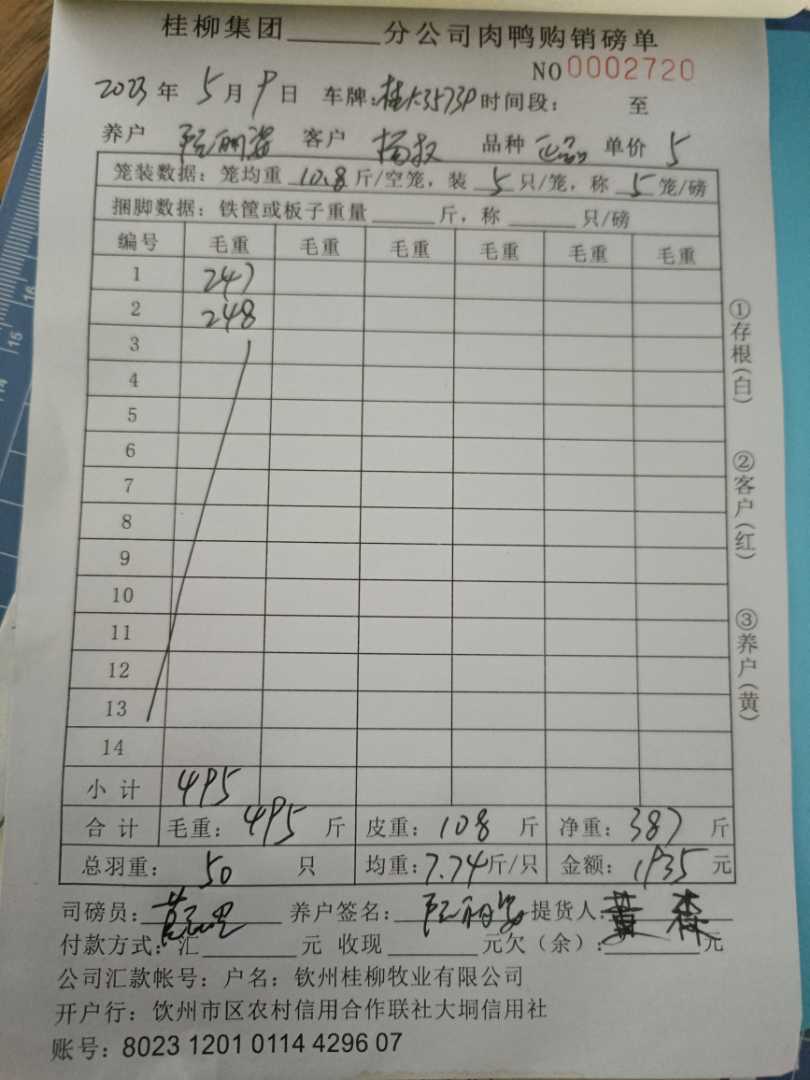 桂柳集团______分公司肉鸭购销磅单
NO 0002720
2023年 5月 9日 车牌: 桂 35739 时间段: 至
养户 阮丽姿 客户 杨叔 品种 正品 单价 5
笼装数据: 笼均重 10.8 斤/空笼, 装 5 只/笼, 称 5 笼/磅
捆脚数据: 铁筐或板子重量______斤, 称______只/磅
编号 毛重 毛重 毛重 毛重 毛重 毛重
1 247
2 248
3
4
5
6
7
8
9
10
11
12
13
14
小 计 495
合 计 毛重: 495 斤 皮重: 108 斤 净重: 387 斤
总羽重: 50 只 均重: 7.74 斤/只 金额: 1935 元
司磅员: 养户签名: 阮丽姿 提货人: 黄森
付款方式: 汇______元 收现______元欠(余):______元
公司汇款帐号: 户名: 钦州桂柳牧业有限公司
开户行: 饮州市区农村信用合作联社大垌信用社
账号: 8023 1201 0114 4296 07
①存根(白)
②客户(红)
③养户(黄)
14
15
16